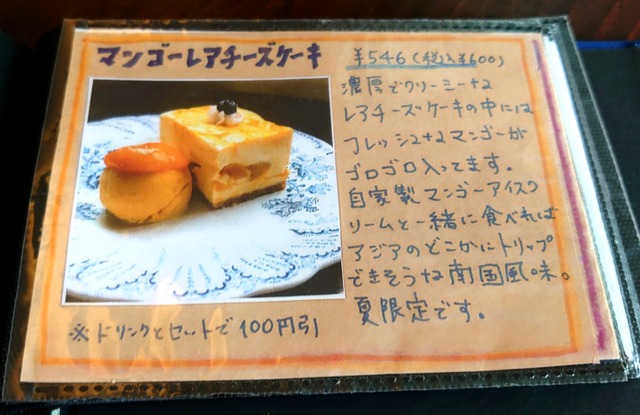 マンゴーレアチーズケーキ
¥546(税込¥600)
濃厚でクリーミーな
レアチーズケーキの中には
フレッシュなマンゴーが
ゴロゴロ入ってます。
自家製マンゴーアイスク
リームと一緒に食べれば
アジアのどこかにトリップ
できそうな南国風味。
夏限定です。
※ドリンクとセットで100円引